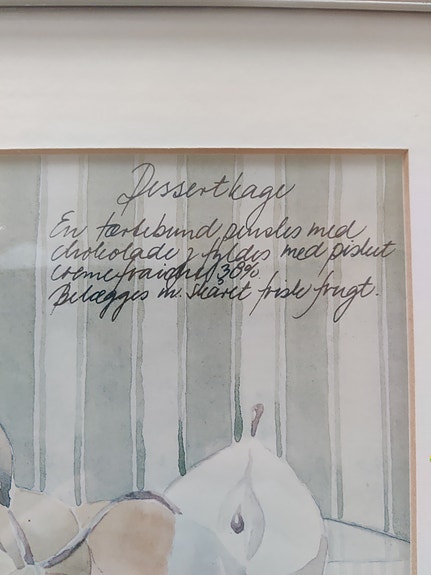 Dessertkage
En tærtebund pensles med
chokolade, fyldes med pisket
cremefraiche 38%.
Belægges m. skåret frisk frugt.